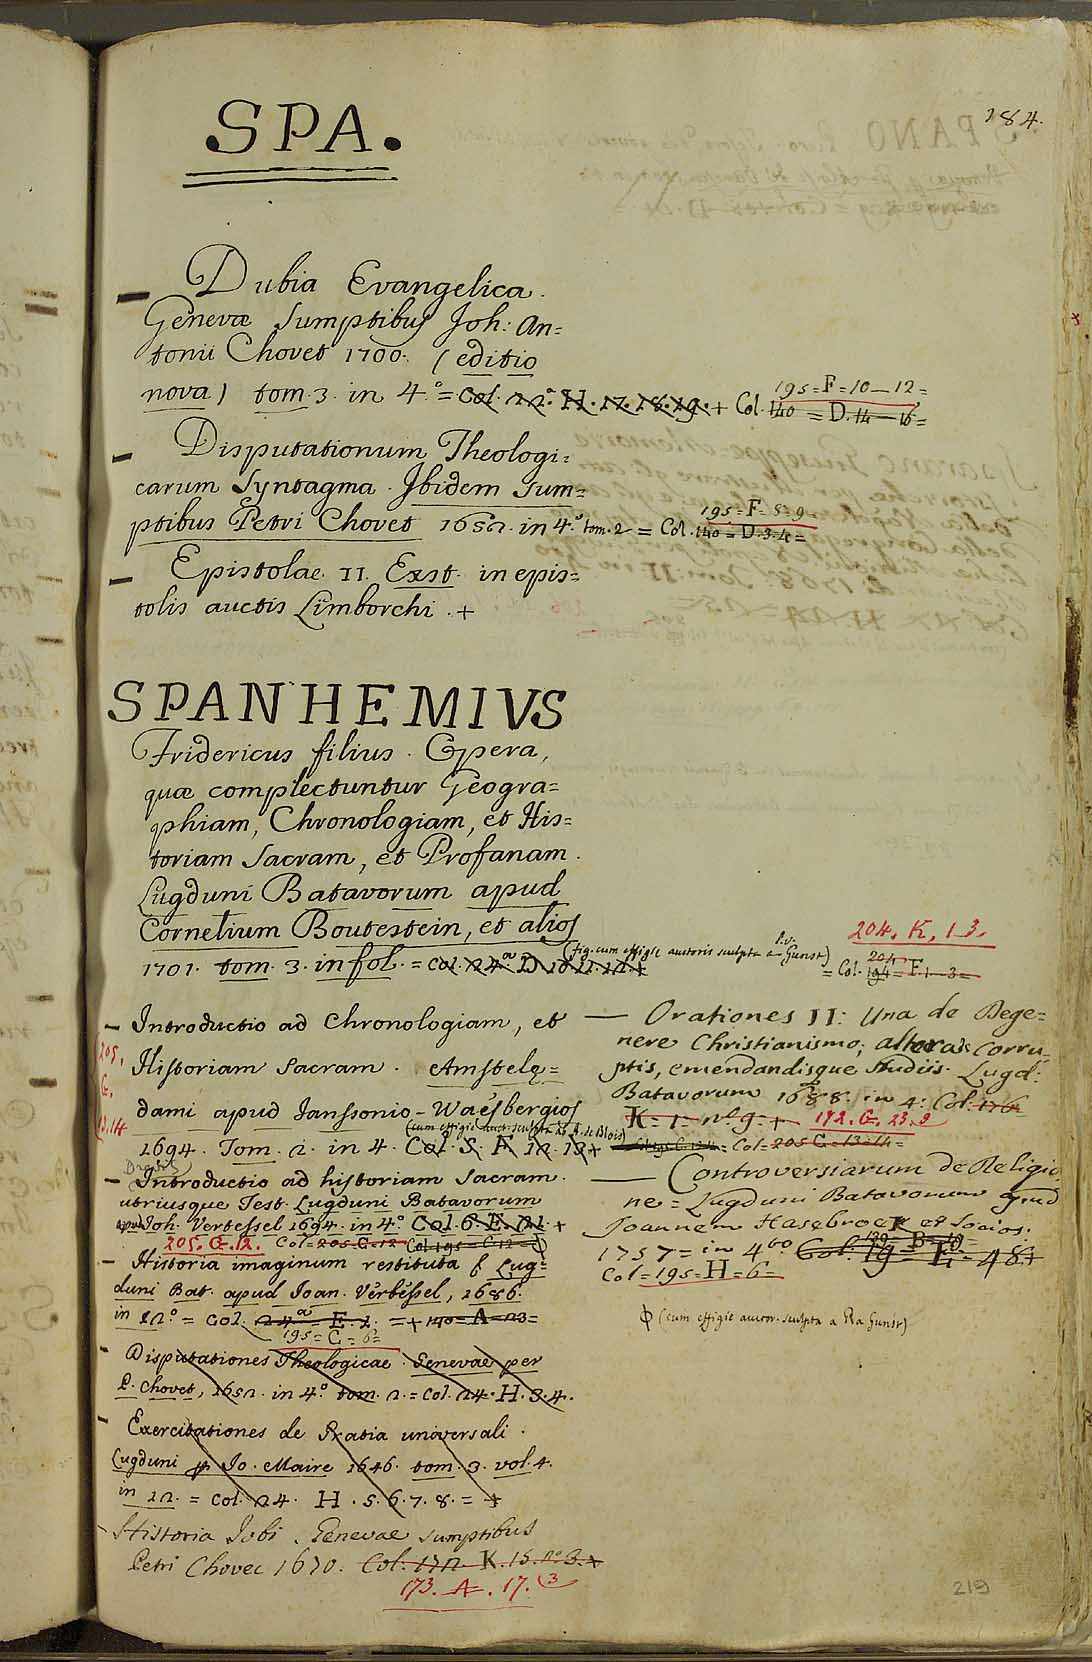 184.
SPA.
Dubia Evangelica.
Genevæ sumptibus Joh: An=
tonii Chovet 1700. (editio
nova) tom. 3. in 4.° = Col. 22.ª H. 17. 18. 19. +
195=F=10_12=
Col. 140 = D. 14 _ 16=
Disputationum Theologi=
carum Syntagma. Ibidem sum=
ptibus Petri Chovet 1652. in 4.° tom. 2 = Col. 140 = D. 3. 4 =
195=F=8=9
Epistolae. II. Exst. in epis=
tolis auctis Limborchi. +
SPANHEMIVS
Fridericus filius. Opera,
quæ complectuntur Geogra=
phiam, Chronologiam, et His=
toriam Sacram, et Profanam.
Lugduni Batavorum apud
Cornelium Boutestein, et alios
1701. tom. 3. in fol. = Col. 24.ª D 10 11. 12. +
(fig. cum effigie autoris sculpta a Gunst)
204. K, 1_3.
204
= Col. 194 = F. 1_3=
_ Introductio ad Chronologiam, et
Historiam Sacram. Amstelo=
dami apud Janssonio-Waesbergios
(cum effigie auct. sculpta ab A. de Blois)
1694. Tom. 2. in 4. Col. S. F. 12. 13 +
205.
G.
13.14
_ Introductio ad historiam Sacram.
utriusque Test. Lugduni Batavorum
apud Joh. Verbessel 1694. in 4.° Col. 6. E. 21. +
205. G. 12. Col=205=G=12 Col 195 = C=12=ϕ
_ Historia imaginum restituta &c Lug=
duni Bat. apud Joan. Verbessel, 1686.
in 12.° = Col. 24.ª = E. 2. = + 140 = A = 23=
195=G=6=
_ Disputationes Theologicae. Genevae per
P. Chovet, 1652. in 4.° tom. 2. = Col. 24. H. 3. 4.
_ Exercitationes de Gratia universali.
Lugduni Jo. Maire 1646. tom. 3. vol. 4.
in 12. = Col. 24. H. 5. 6. 7. 8. = +
_ Historia Jobi. Genevae sumptibus
Petri Chovec 1670. Col. 172. K. 15. n° 3. +
173. A. 17. (3
— Orationes II: Una de Dege=
nere Christianismo; altera de Corru=
ptis, emendandisque studiis. Lugd:
Batavorum 1688. in 4: Col. 176
K. 1. n.° 9. + 172. G. 23. 9
= Col= 205 G=13=14=
— Controversiarum de Religio
ne = Lugduni Batavorum apud
Joannem Hasebroek et socios.
1757 = in 4to Col. 19 = E = 48+
139=B=19=
Col=195=H=6=
ϕ (cum effigie auctor. sculpta a Gunst)
219